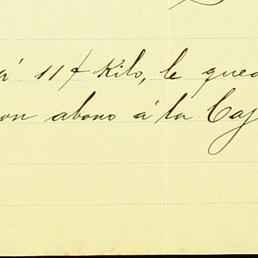 á 11 ₵ Kilo, le que
on abono á la Caj